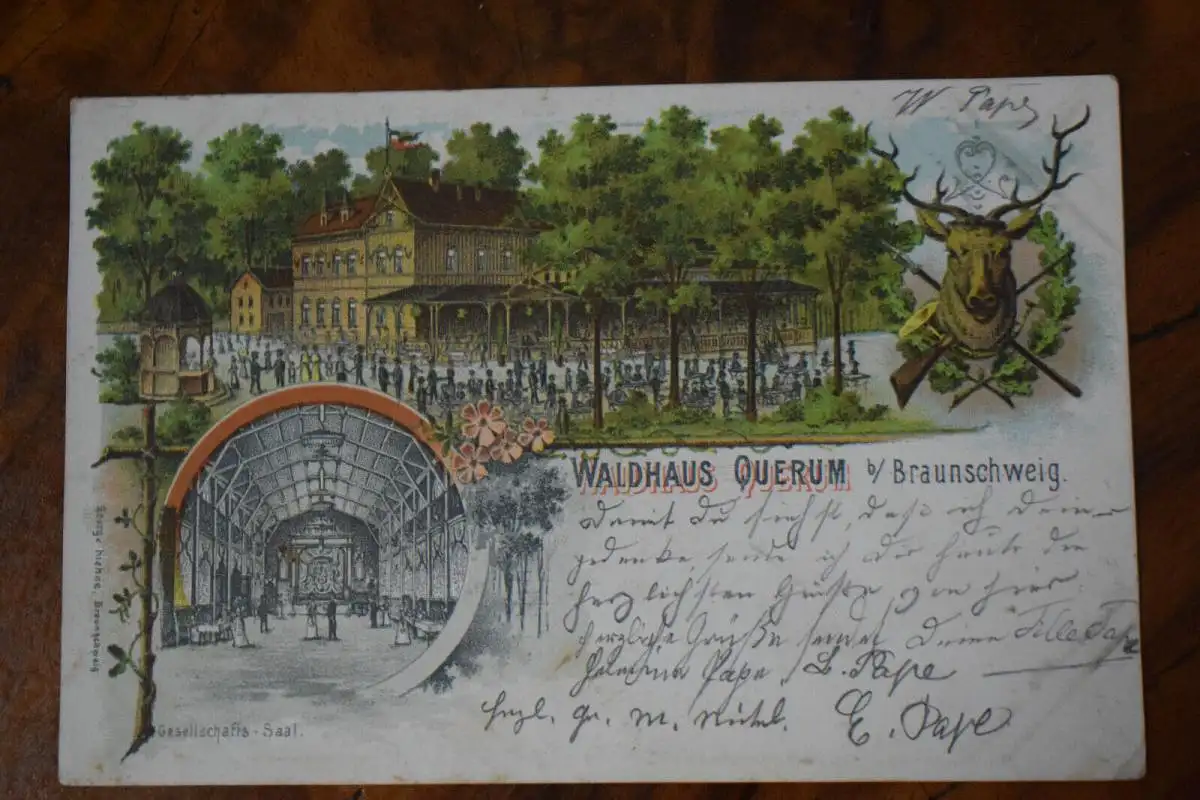 W Pape
WALDHAUS QUERUM b/ Braunschweig.
damit du siehst, daß ich dein
gedenke, sende ich dir heute die
herzlichsten Grüße von hier.
herzliche Grüße sendet deine Tille Pape
Pape, L. Pape
Herzl. Gr. M.
E. Pape
Gesellschafts-Saal.
George Niehas, Braunschweig